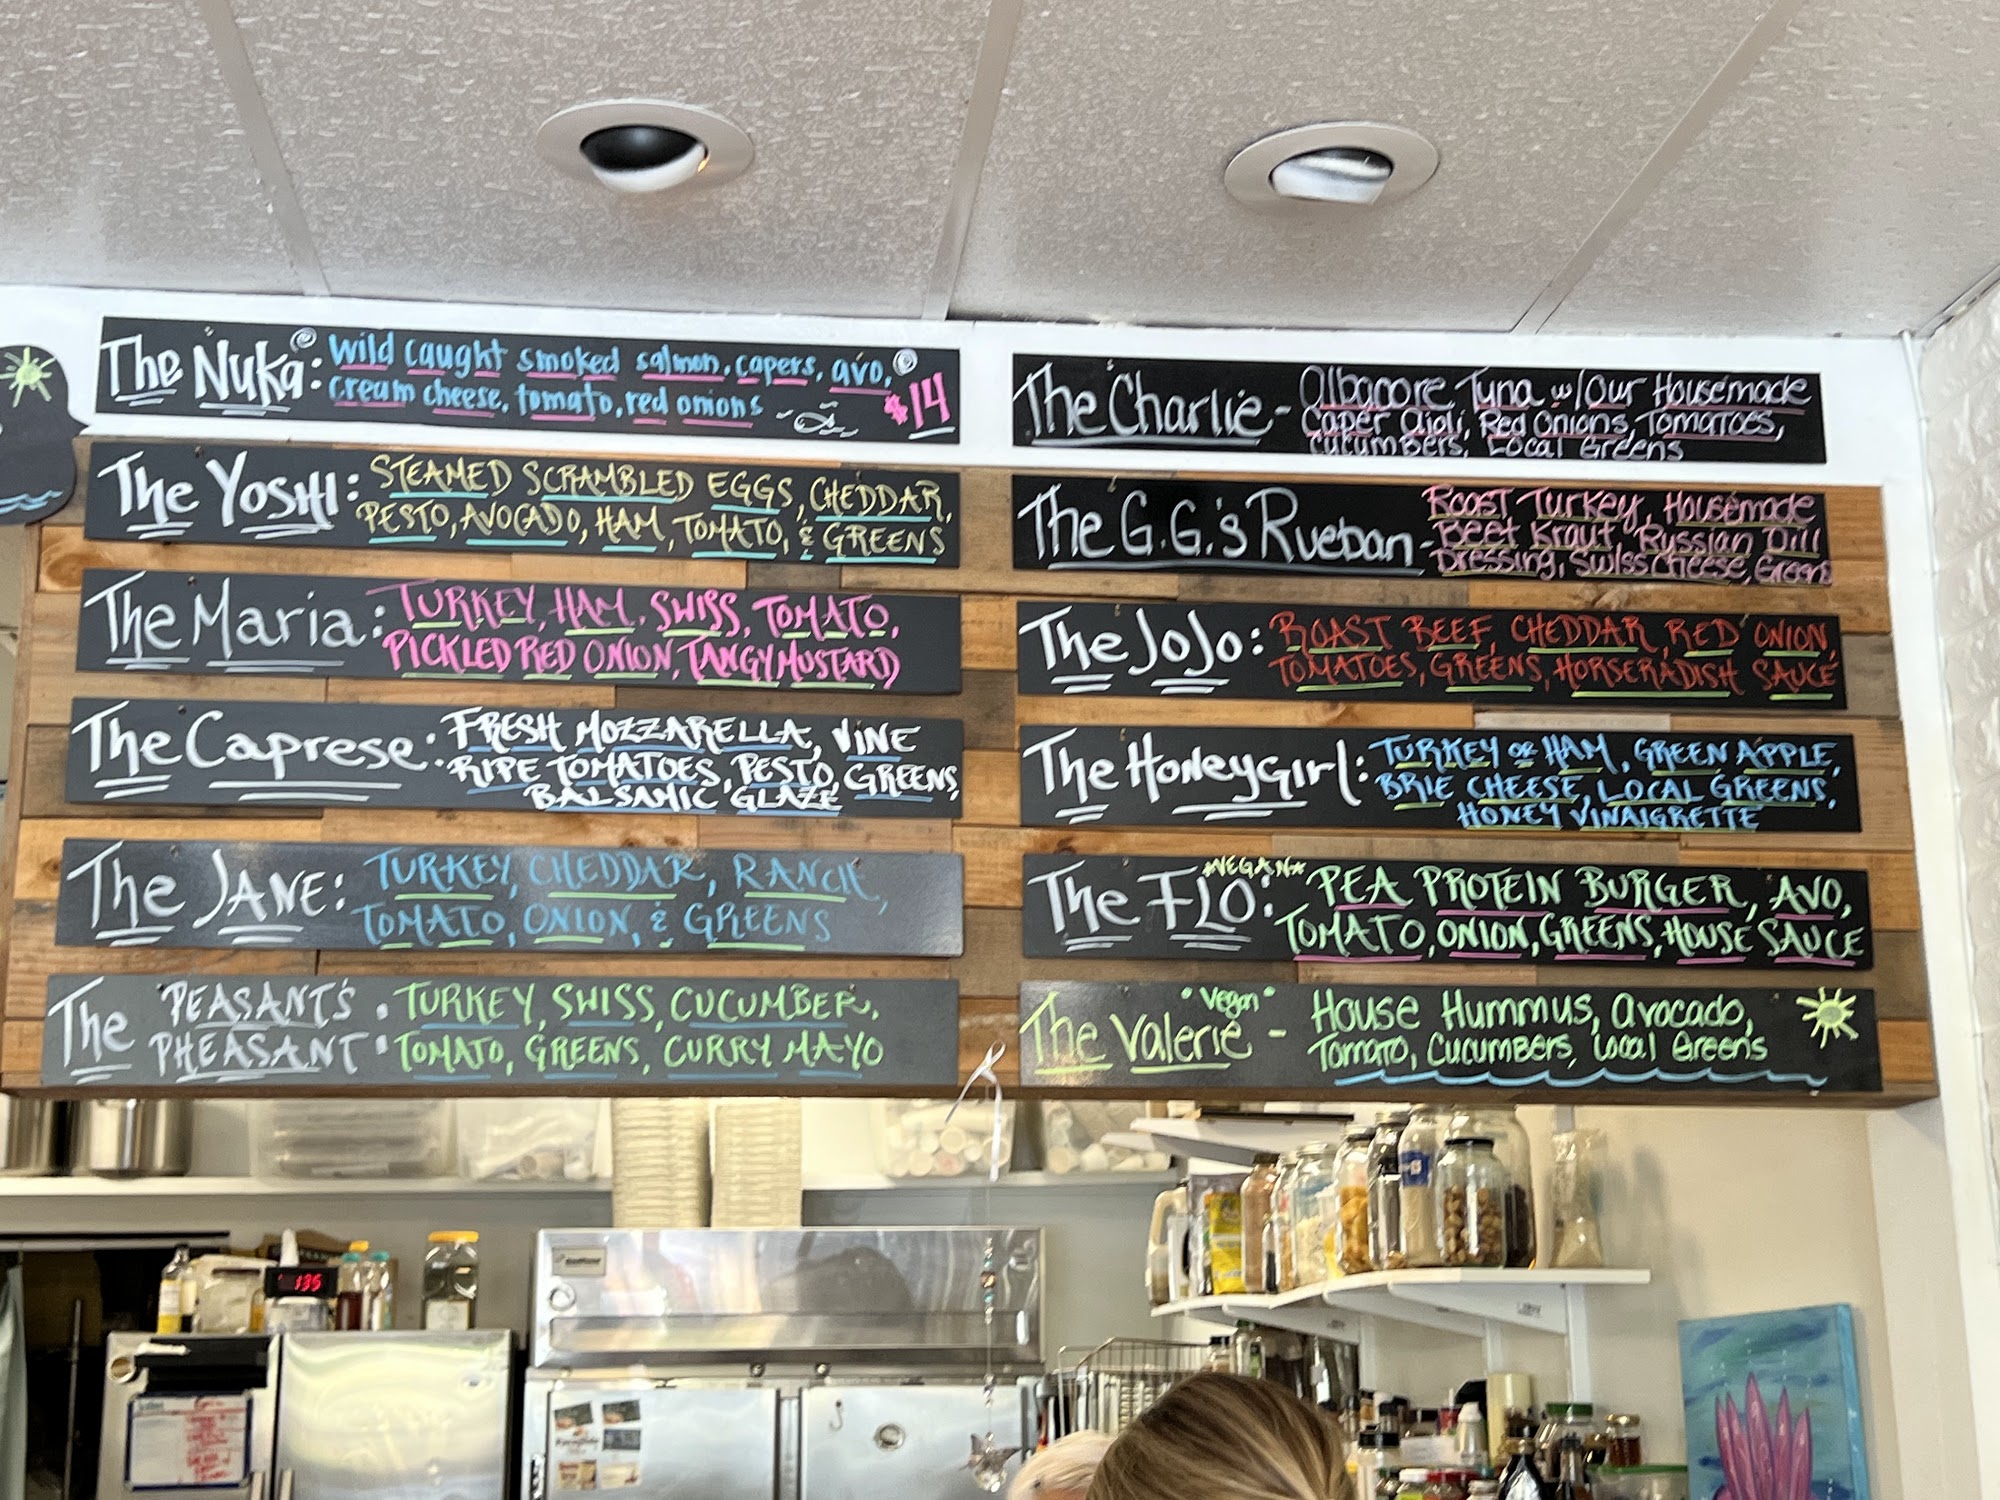 The Nuka: Wild caught smoked salmon, capers, avo,
cream cheese, tomato, red onions $14
The Yoshi: Steamed Scrambled Eggs, Cheddar,
Pesto, Avocado, Ham, Tomato, & Greens
The Maria: Turkey, Ham, Swiss, Tomato,
Pickled Red Onion, Tangy Mustard
The Caprese: Fresh Mozzarella, Vine
Ripe Tomatoes, Pesto, Greens,
Balsamic Glaze
The Jane: Turkey, Cheddar, Ranch,
Tomato, Onion, & Greens
The Peasant's Pheasant: Turkey, Swiss, Cucumber,
Tomato, Greens, Curry Mayo
The Charlie - Albapore Tuna w/ Our Housemade
Caper Aioli, Red Onions, Tomatoes,
Cucumbers, Local Greens
The G.G.'s Rueban - Roast Turkey, Housemade
Beet Kraut, Russian Dill
Dressing, Swiss Cheese, Greens
The JoJo: Roast Beef, Cheddar, Red Onion,
Tomatoes, Greens, Horseradish Sauce
The Honeygirl: Turkey or Ham, Green Apple,
Brie Cheese, Local Greens,
Honey Vinaigrette
The Flo *Vegan*: Pea Protein Burger, Avo,
Tomato, Onion, Greens, House Sauce
The Valerie "Vegan" - House Hummus, Avocado,
Tomato, Cucumbers, Local Greens
135